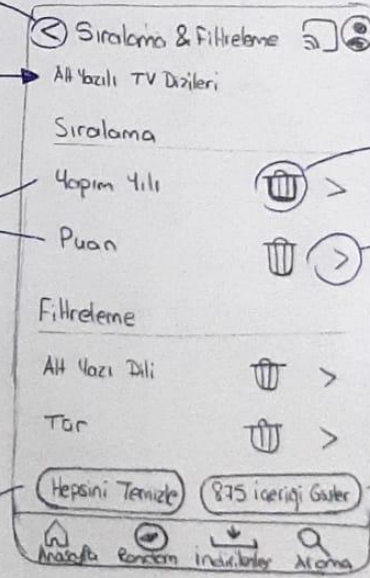 Sıralama & Filtreleme
Alt Yazılı TV Dizileri
Sıralama
Yapım Yılı
Puan
Filtreleme
Alt Yazı Dili
Tür
Hepsini Temizle
875 içeriği Göster
Anasayfa Random indirilenler Arama